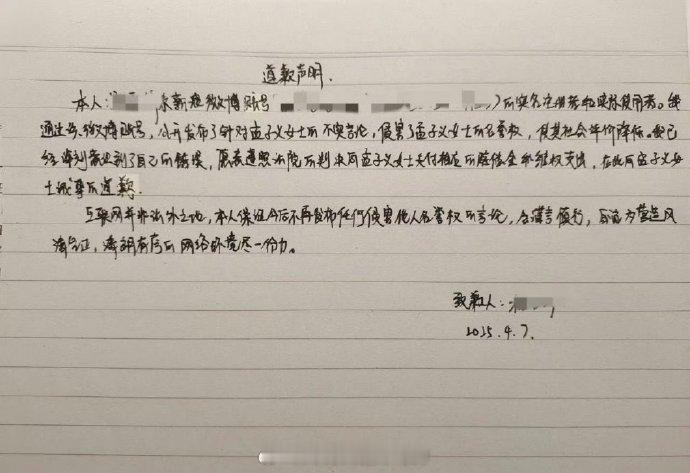 道歉声明.
本人: 系新浪微博账号 )的实名注册者和实际使用者。我
通过该微博账号，公开发布了针对孟子义女士的不实言论，侵害了孟子义女士的名誉权，使其社会评价降低。我已
经深刻意识到了自己的错误，愿意遵照法院的判决向孟子义女士支付相应的赔偿金和维权支出，在此向孟子义女
士诚挚的道歉.
互联网并非法外之地，本人保证今后不再发布任何侵害他人名誉权的言论，会谨言慎行，为营造风
清气正，清朗有序的网络环境尽一份力。
致歉人:
2025.4.7.